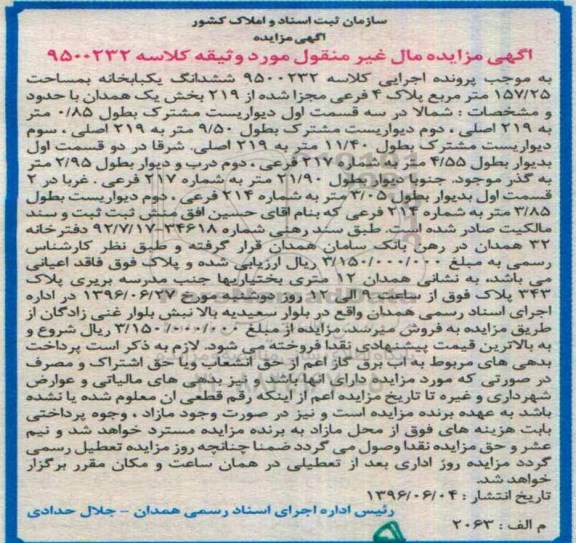 سازمان ثبت اسناد و املاک کشور
آگهی مزایده
آگهی مزایده مال غیر منقول مورد وثیقه کلاسه ۹۵۰۰۲۳۲
به موجب پرونده اجرایی کلاسه ۹۵۰۰۲۳۲ ششدانگ یکبابخانه بمساحت
۱۵۷/۲۵ متر مربع پلاک ۴ فرعی مجزا شده از ۲۱۹ بخش یک همدان با حدود
و مشخصات : شمالا در سه قسمت اول دیواریست مشترک بطول ۰/۸۵ متر
به ۲۱۹ اصلی ، دوم دیواریست مشترک بطول ۹/۵۰ متر به ۲۱۹ اصلی ، سوم
دیواریست مشترک بطول ۱۱/۴۰ متر به ۲۱۹ اصلی. شرقا در دو قسمت اول
بدیوار بطول ۴/۵۵ متر به شماره ۲۱۷ فرعی ، دوم درب و دیوار بطول ۲/۹۵ متر
به گذر موجود. جنوبا دیوار بطول ۲۱/۹۰ متر به شماره ۲۱۷ فرعی . غربا در ۲
قسمت اول بدیوار بطول ۳/۰۵ متر به شماره ۲۱۴ فرعی ، دوم دیواریست بطول
۳/۸۵ متر به شماره ۲۱۴ فرعی که بنام آقای حسین افق منش ثبت ثبت و سند
مالکیت صادر شده است. طبق سند رهنی شماره ۳۴۶۱۸-۹۲/۷/۱۷ دفترخانه
۳۲ همدان در رهن بانک سامان همدان قرار گرفته و طبق نظر کارشناس
رسمی به مبلغ ۳/۱۵۰/۰۰۰/۰۰۰ ریال ارزیابی شده و پلاک فوق فاقد اعیانی
می باشد، به نشانی همدان ۱۲ متری بختیاریها جنب مدرسه بربری پلاک
۳۴۳ پلاک فوق از ساعت ۹ الی ۱۲ روز دوشنبه مورخ ۱۳۹۶/۰۶/۲۷ در اداره
اجرای اسناد رسمی همدان واقع در بلوار سعیدیه بالا نبش بلوار غنی زادگان از
طریق مزایده به فروش میرسد. مزایده از مبلغ ۳/۱۵۰/۰۰۰/۰۰۰ ریال شروع و
به بالاترین قیمت پیشنهادی نقدا فروخته می شود. لازم به ذکر است پرداخت
بدهی های مربوط به آب برق گاز اعم از حق انشعاب ویا حق اشتراک و مصرف
در صورتی که مورد مزایده دارای آنها باشد و نیز بدهی های مالیاتی و عوارض
شهرداری و غیره تا تاریخ مزایده اعم از اینکه رقم قطعی آن معلوم شده یا نشده
باشد به عهده برنده مزایده است و نیز در صورت وجود مازاد ، وجوه پرداختی
بابت هزینه های فوق از محل مازاد به برنده مزایده مسترد خواهد شد و نیم
عشر و حق مزایده نقدا وصول می گردد ضمنا چنانچه روز مزایده تعطیل رسمی
گردد مزایده روز اداری بعد از تعطیلی در همان ساعت و مکان مقرر برگزار
خواهد شد.
تاریخ انتشار : ۱۳۹۶/۰۶/۰۴
رئیس اداره اجرای اسناد رسمی همدان – جلال حدادی
م الف : ۲۰۶۳